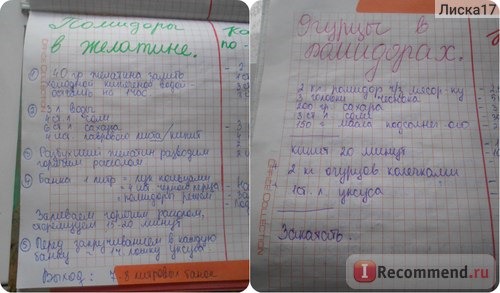 Лиска17
Помидоры
в желатине.
① 40 гр желатина залить
холодной кипячёной водой
оставить на час.
② 3 л воды
4 ст. л соли
6 ст. л сахара
4 шт лавровый листа / кипит
③ Разбухший желатин разводим
горячим рассолом
④ Банка 1 литр = лук кольцами
= 4 шт черного перца
помидоры режем
Заливаем горячим рассолом,
стерилизуем 15-20 минут
⑤ Перед закручиванием в каждую
банку ч. ложку уксуса
Выход: 7-8 литровых банок
Огурцы в
помидорах.
2 кг помидор ч/з мясор-ку
3 головки чеснока
200 гр сахара
3 ст л соли
150 = масла подсолнег-ого
кипит 20 минут
2 кг огурцов колечками
1 ст. л уксуса
Закатать.
IRecommend.ru